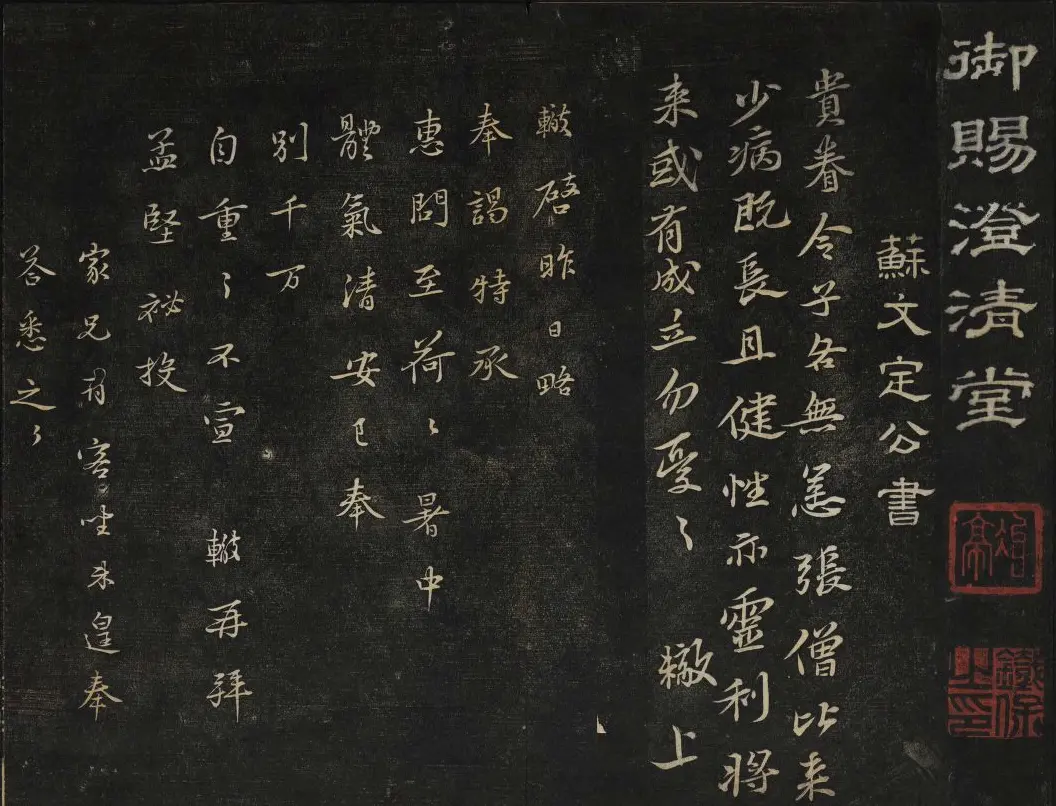 御賜澄清堂
蘇文定公書
貴眷令子各無恙張僧比来
少病既長且健性亦靈利将
来或有成立勿憂〻 轍上
轍啓昨日略
奉謁特承
惠問至荷〻 暑中
體氣清安已奉
別千万
自重〻不宣 轍再拜
孟堅秘投
家兄有客坐未遑奉
答悉之〻
鐵保
之印